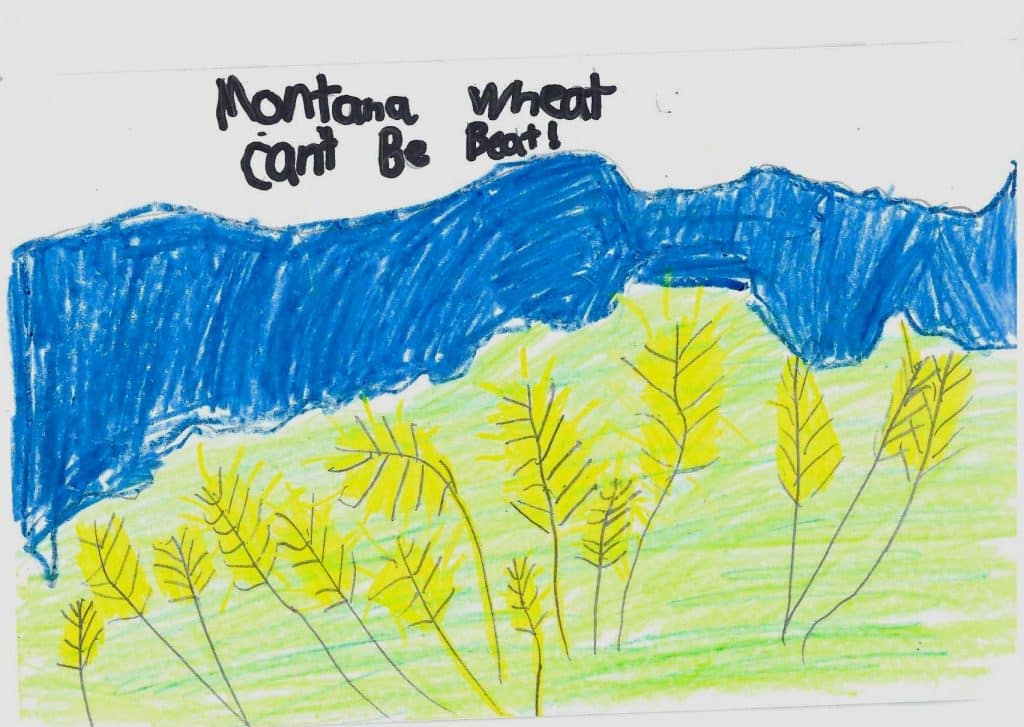 Montana wheat
can't Be Beat!